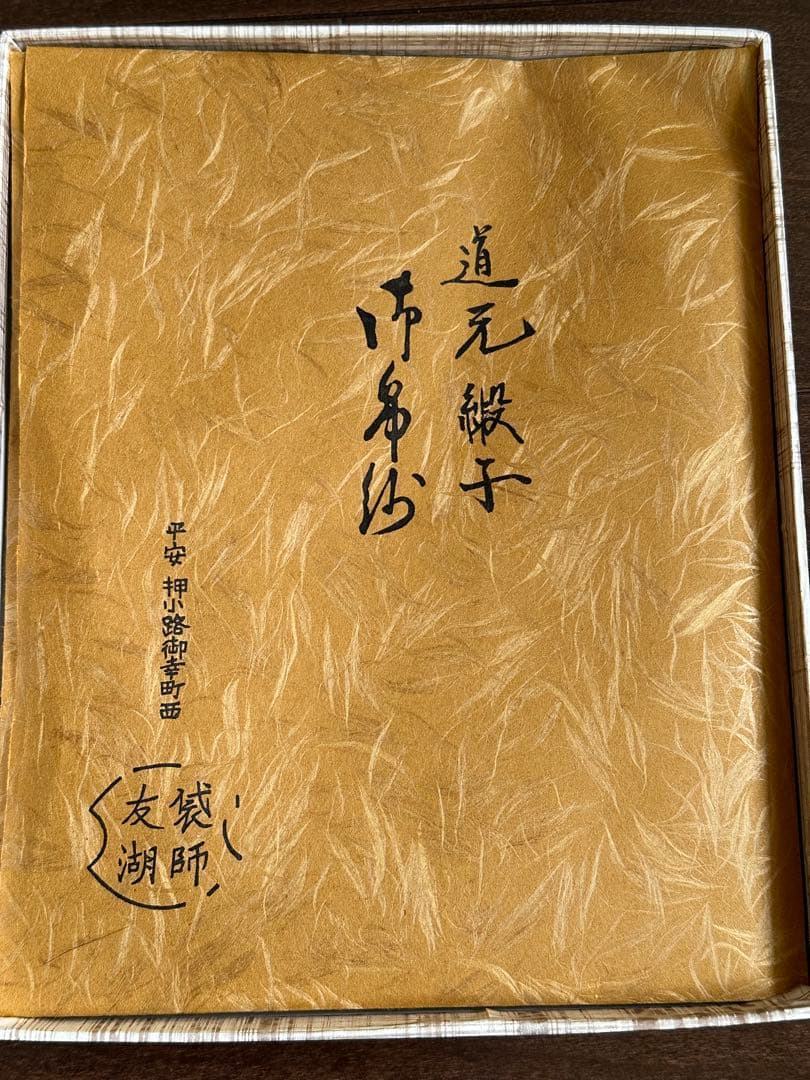 道元緞子
御帛紗
平安 押小路御幸町西
袋師
友湖